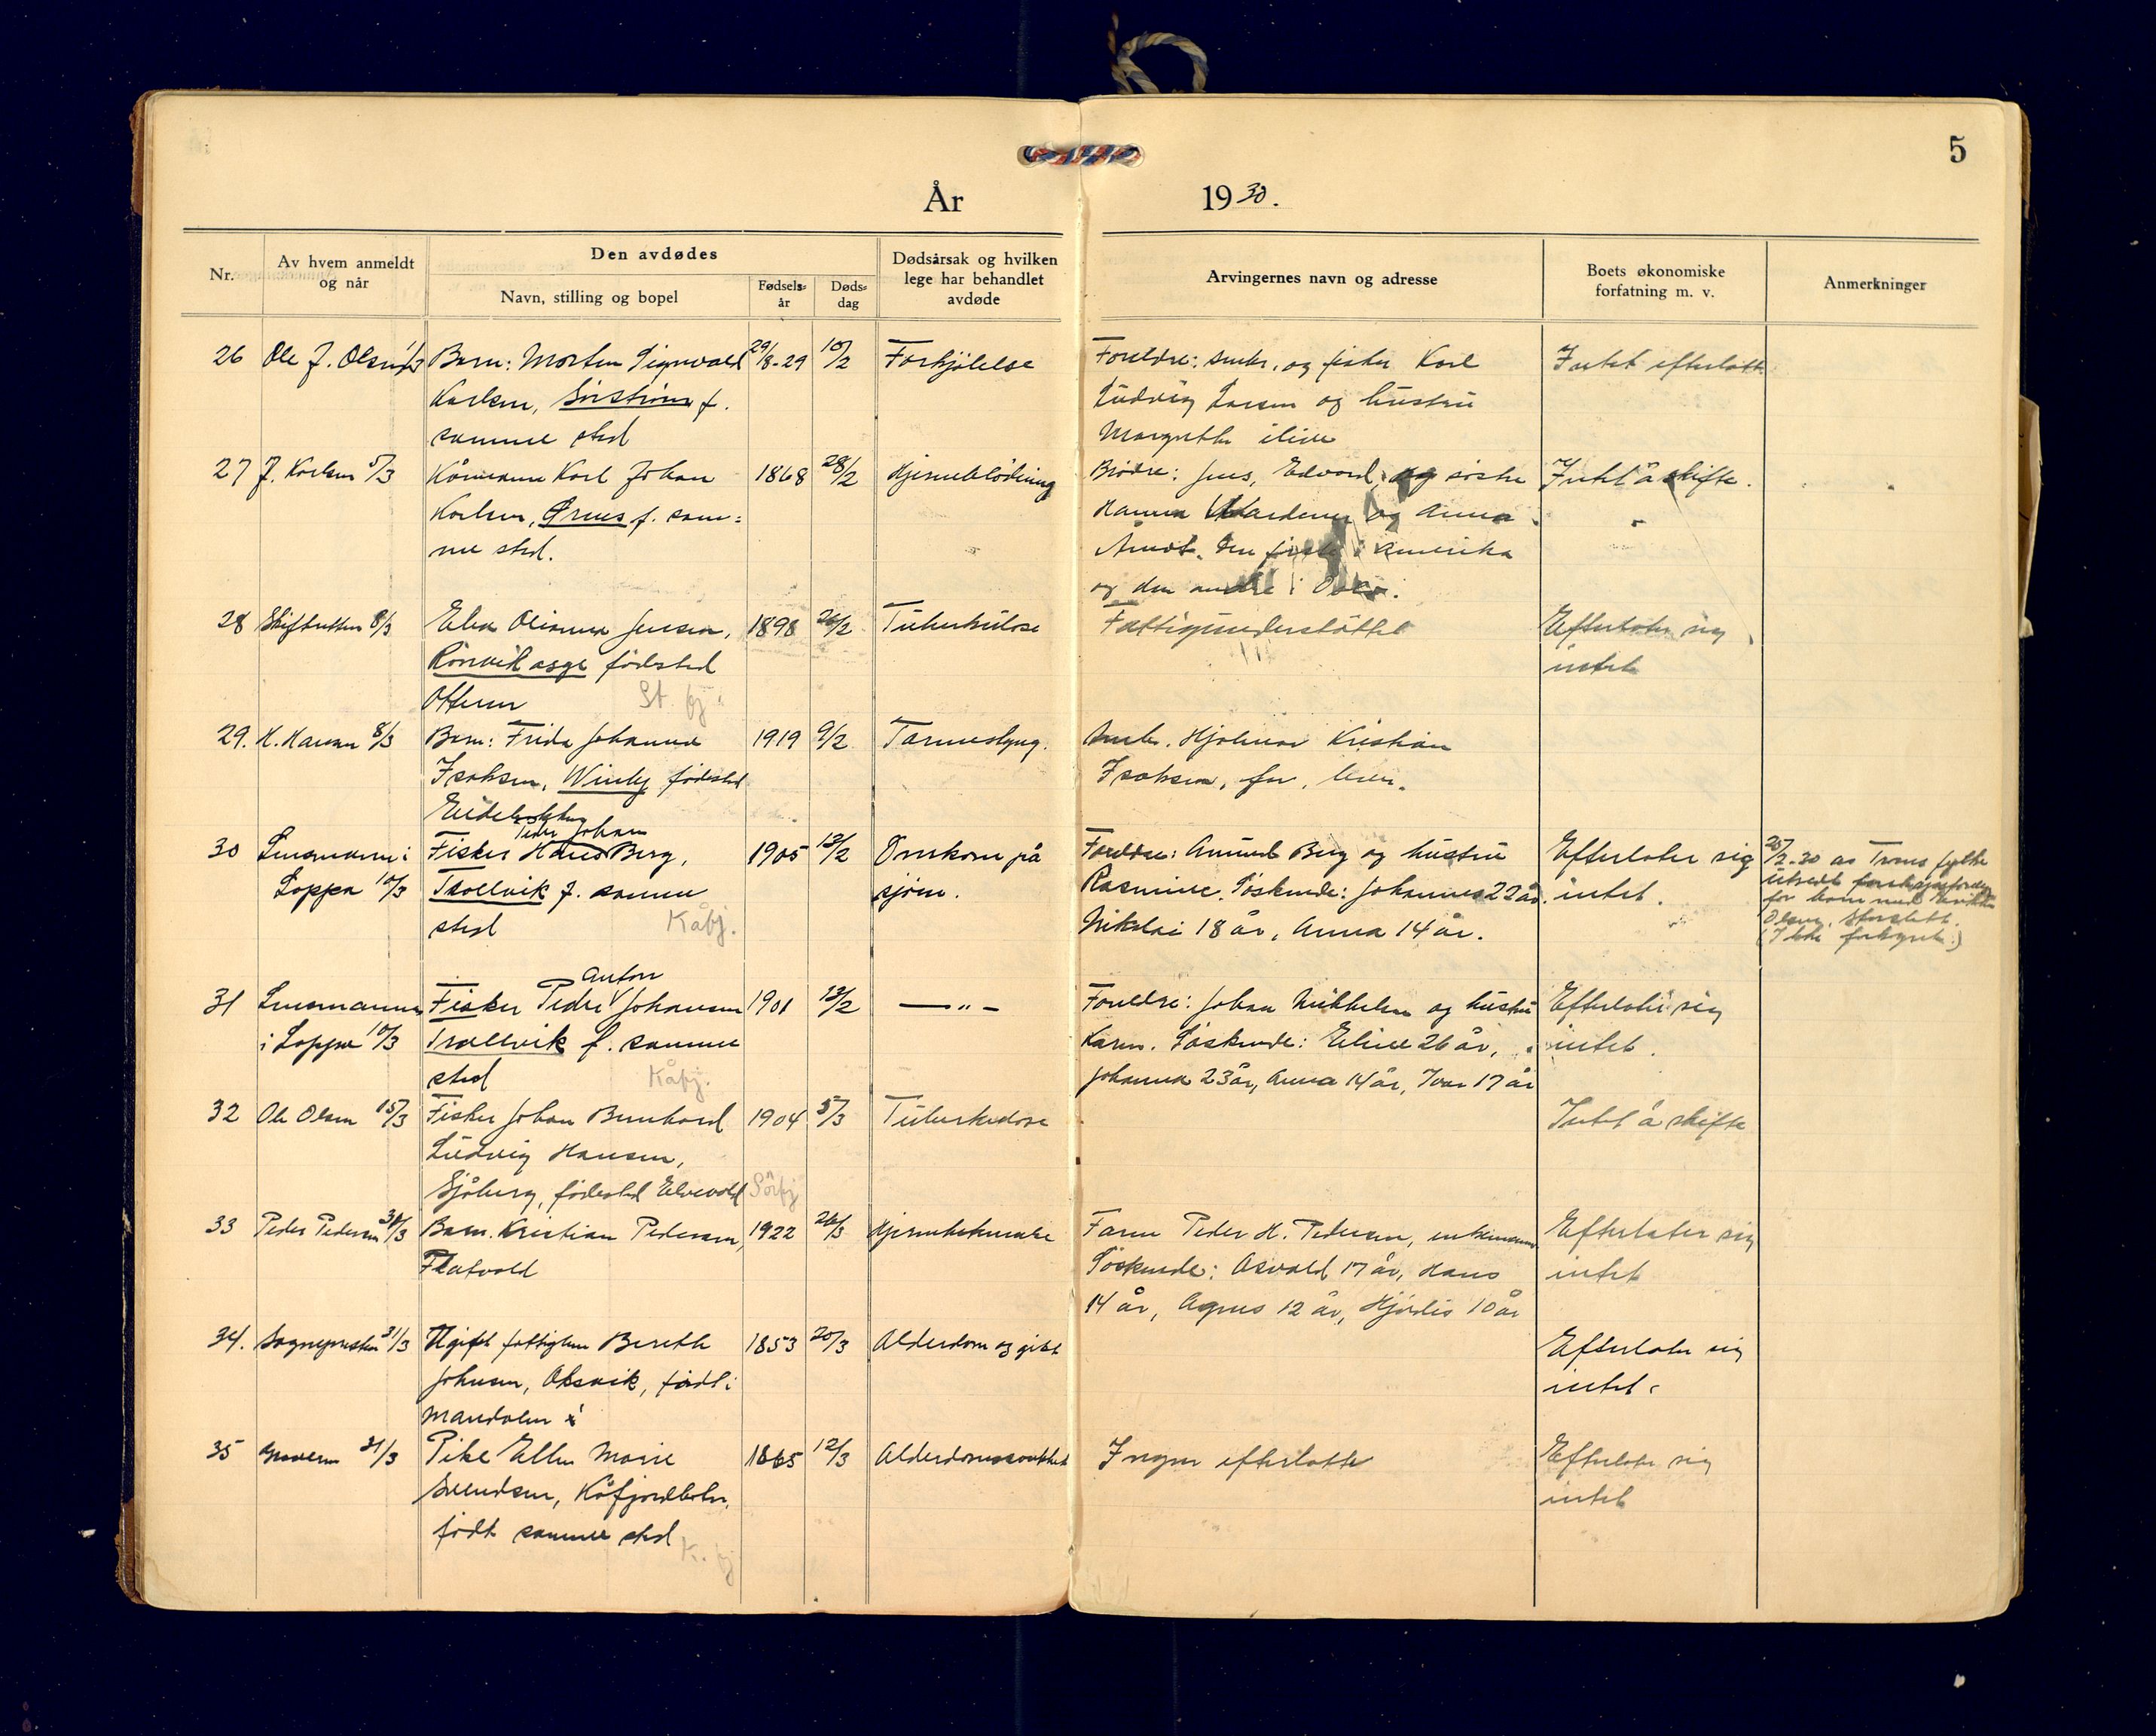 5
År 1930.
Nr.
Av hvem anmeldt og når
Den avdødes
Navn, stilling og bopel
Fødsels-år
Døds-dag
Dødsårsak og hvilken lege har behandlet avdøde
Arvingernes navn og adresse
Boets økonomiske forfatning m. v.
Anmerkninger
26 Ole J. Olsen Barn: Morten Signvald 29/8-29 10/2 Forkjølelse Foreldre: småbr. og fisker Karl Intet efterlatt
Karlsen, f. Ludvig Larsen og hustru
samme sted Margrethe ilive
27 J. Karlsen 5/3 Kårmann Karl Johan 1868 28/2 Hjerneblødning Brødre: Jens, Edvard, og søstre Intet å skifte.
Karlsen, f. sam= Hanna og Anna
me sted. Amerika
og den andre i Oslo.
28 Skifteretten 8/3 Elen Olianna Jensen, 1898 26/2 Tuberkulose Fattigunderstøttet Efterlater sig
Rønvik asyl fødested intet
Otteren St. fj.
29. H. Hansen 8/3 Barn: Frida Johanna 1919 9/2 Tarmslyng. Småbr. Hjalmar Kristian
Isaksen, fødested Isaksen, far, lever.
Peder Johan
30 Lensmannen i Fisker Hans Berg, 1905 13/2 Omkom på Foreldre: Amund Berg og hustru Efterlater sig 25/2-30 av Troms fylke
Loppa 10/3 Trollvik f. samme sjøen. Rasmine. Søskende: Johannes 22 år. intet. utredt
sted Kåfj. Nikolai 18 år, Anna 14 år. for barn med
Olsen, Storslett.
Anton
31 Lensmannen Fisker Peder Johansen 1901 13/2 — " — Foreldre: Johan Mikkelsen og hustru Efterlater sig
i Loppa 10/3 Trollvik f. samme Karen. Søskende: Eline 26 år, intet.
sted Kåfj. Johanna 23 år, Anna 14 år, Ivar 17 år
32 Ole Olsen 15/3 Fisker Johan Bernhard 1904 5/3 Tuberkulose Intet å skifte
Ludvig Hansen,
Sjåberg, fødested Elvevold Sørfj
33 Peder Pedersen 31/3 Barn. Kristian Pedersen, 1922 26/3 Faren Peder H. Pedersen, enkemann Efterlater sig
Flatvold Søskende: Asvald 17 år, Hans intet
14 år, Agnus 12 år, Hjørdis 10 år
34. Sognepresten 31/3 Ugift fattiglem Bereth 1853 20/3 Alderdom og gikt Efterlater sig
Johnsen, Oksvik, født i intet.
Mandalen
35 31/3 Pike Ellen Marie 1865 12/3 Alderdomssvakhet Ingen efterlatte Efterlater sig
Svendsen, Kåfjordbotn, intet
født samme sted K. fj